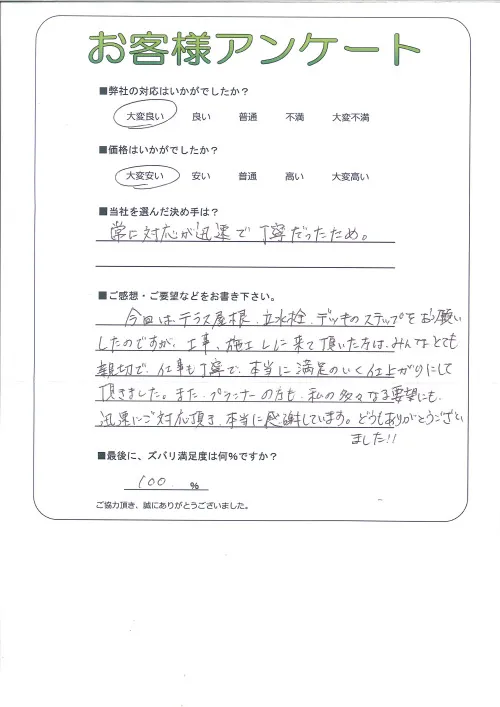 お客様アンケート
■弊社の対応はいかがでしたか？
大変良い 良い 普通 不満 大変不満
■価格はいかがでしたか？
大変安い 安い 普通 高い 大変高い
■当社を選んだ決め手は？
常に対応が迅速で丁寧だったため。
■ご感想・ご要望などをお書き下さい。
今回は、テラス屋根、立水栓、デッキのステップをお願い
したのですが、工事、施工しに来て頂いた方は、みんなとても
親切で、仕事も丁寧で、本当に満足のいく仕上がりにして
頂きました。また、プランナーの方も、私の多々なる要望にも、
迅速にご対応頂き、本当に感謝しています。どうもありがとうござい
ました!!
■最後に、ズバリ満足度は何%ですか？
100 %
ご協力頂き、誠にありがとうございました。